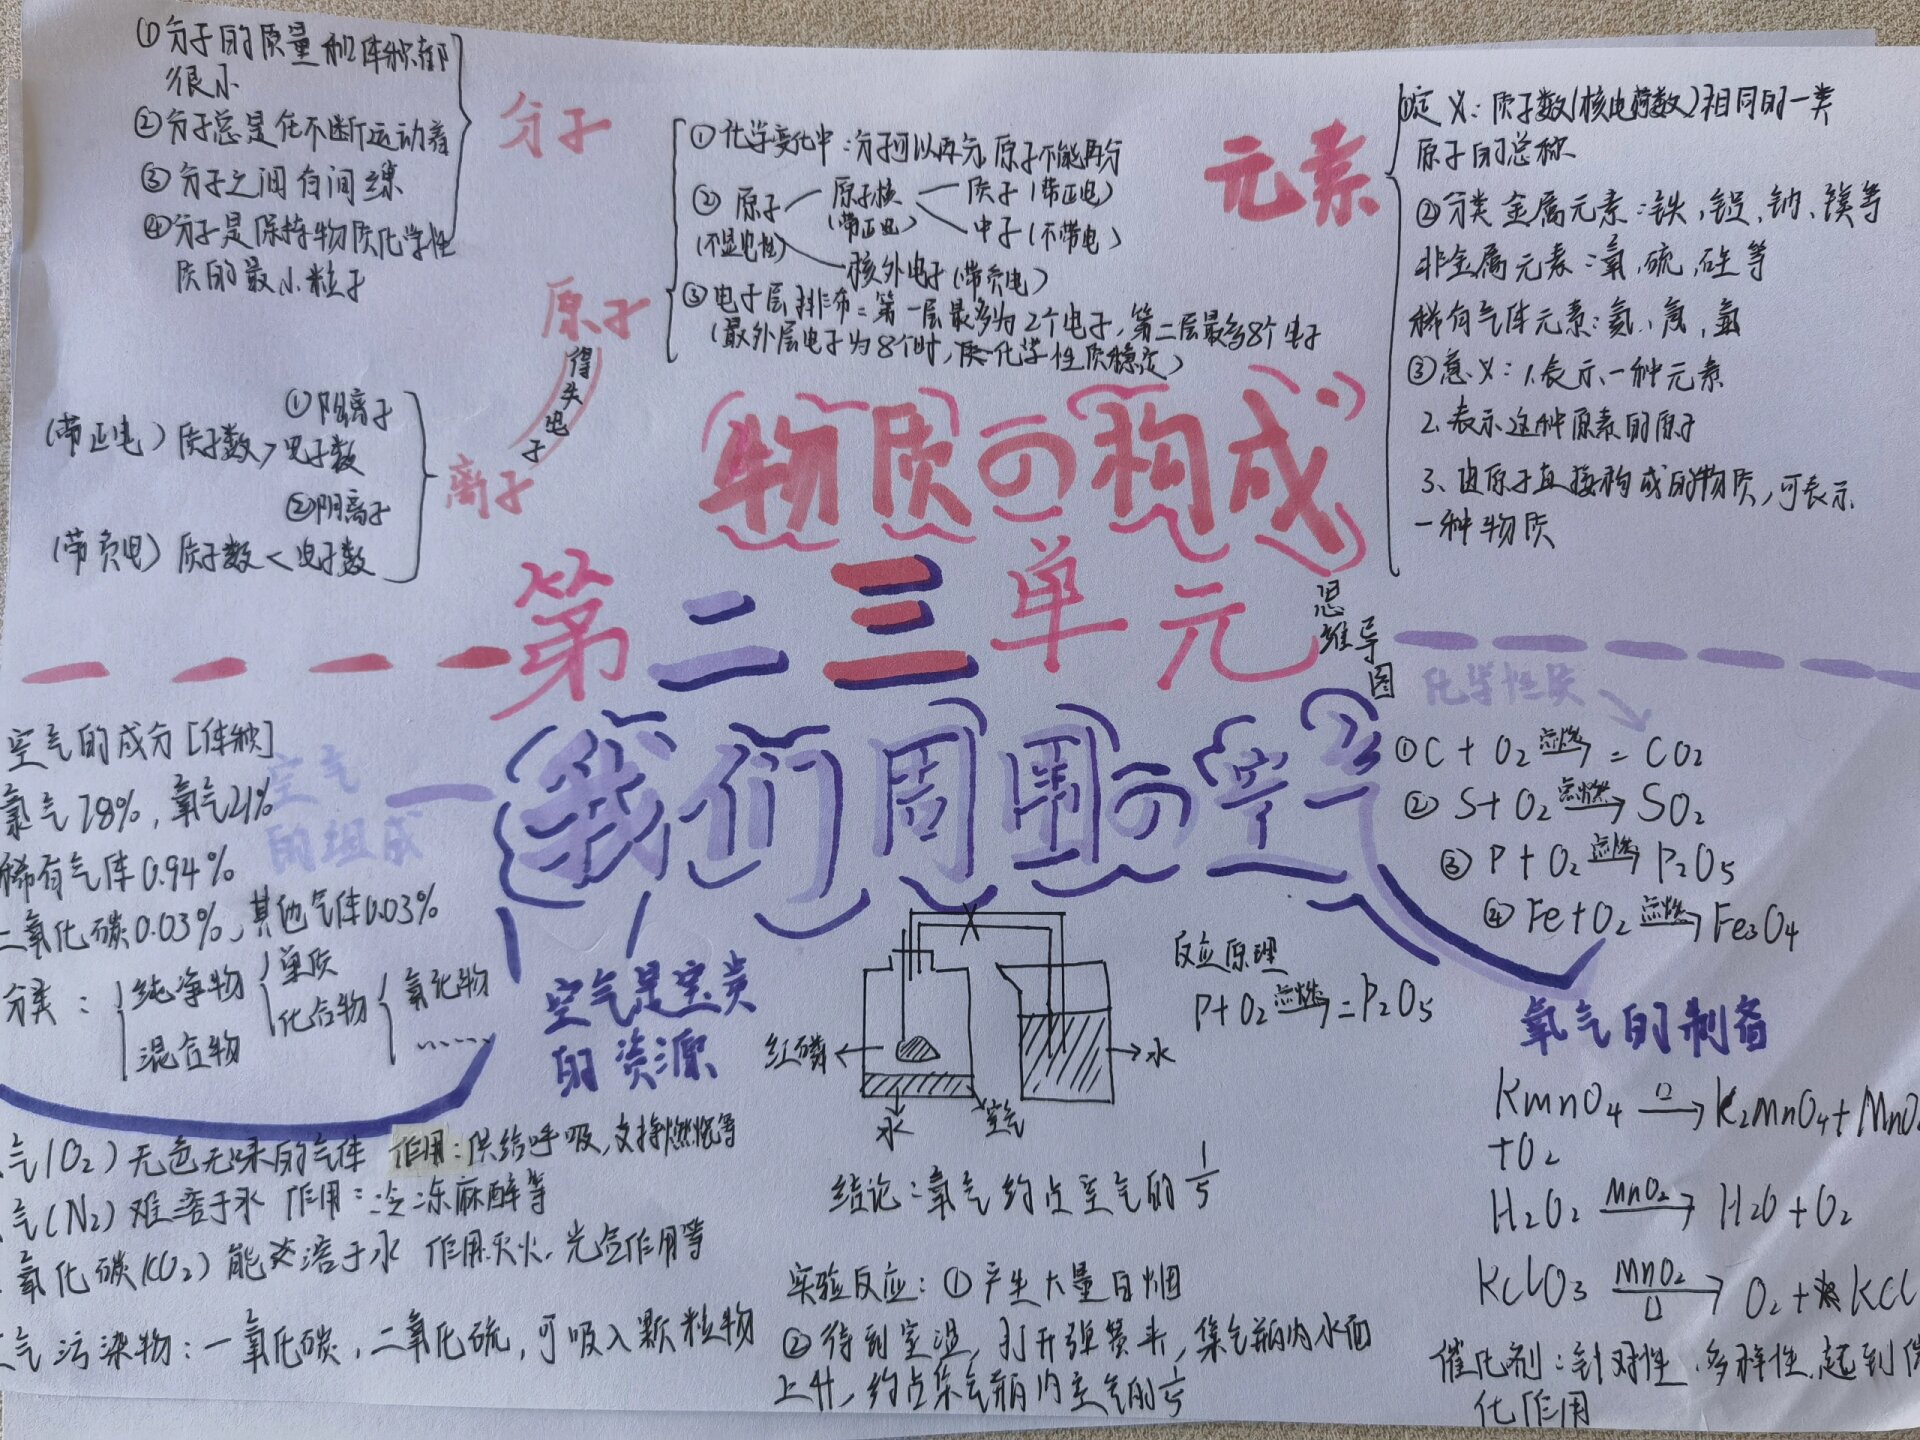 ①分子的质量和体积都
很小
②分子总是在不断运动着
③分子之间有间隙
④分子是保持物质化学性
质的最小粒子
分子
①化学变化中：分子可以再分，原子不能再分
②原子 原子核 质子(带正电)
(不显电性) (带正电) 中子(不带电)
核外电子(带负电)
③电子层排布：第一层最多为2个电子，第二层最多8个电子
(最外层电子为8个时，化学性质稳定)
原子
得失电子
离子
①阳离子
(带正电) 质子数>电子数
②阴离子
(带负电) 质子数<电子数
元素
①定义：质子数(核电荷数)相同的一类
原子的总称
②分类 金属元素：铁，铝，钠、镁等
非金属元素：氧，硫，硅等
稀有气体元素：氦、氖，氩
③意义：1.表示一种元素
2.表示这种原素的原子
3、由原子直接构成的物质，可表示
一种物质
物质の构成
第二三单元
思维导图
我们周围の空气
空气的成分[体积]
氮气78%，氧气21%
稀有气体0.94%
二氧化碳0.03%，其他气体0.03%
空气
的组成
分类： 纯净物 单质
化合物 氧化物
......
混合物
空气是宝贵
的资源
气(O₂)无色无味的气体 作用：供给呼吸，支持燃烧等
气(N₂)难溶于水 作用：冷冻麻醉等
氧化碳(CO₂)能溶于水 作用：灭火，光合作用等
气污染物：一氧化碳，二氧化硫，可吸入颗粒物
红磷
水
空气
水
反应原理
P+O₂ 点燃→ =P₂O₅
结论：氧气约占空气的1/5
实验反应：①产生大量白烟
②待到室温，打开弹簧夹，集气瓶内水面
上升，约占集气瓶内空气的1/5
化学性质
①C+O₂ 点燃→ =CO₂
②S+O₂ 点燃→ SO₂
③P+O₂ 点燃→ P₂O₅
④Fe+O₂ 点燃→ Fe₃O₄
氧气的制备
KmnO₄ △→ K₂MnO₄+MnO
+O₂
H₂O₂ MnO₂→ H₂O+O₂
KClO₃ MnO₂ △→ O₂+KCl
催化剂：针对性，多样性，起到
化作用